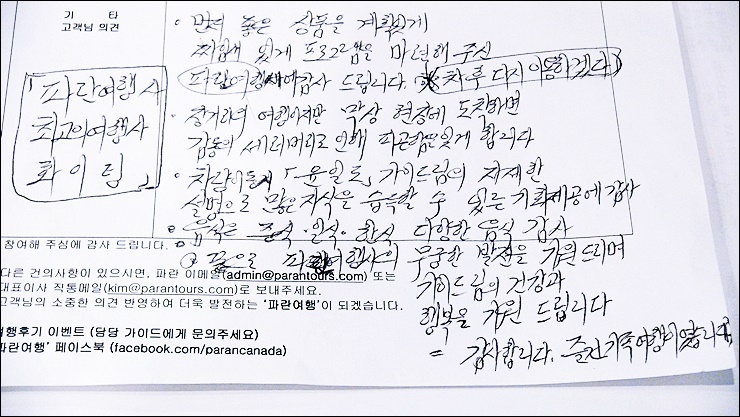 기 타
고객님 의견
· 먼저 좋은 상품을 계획있게
짜임새 있게 프로그램을 마련해 주신
파란여행사에 감사 드립니다. (차후 다시 이용하겠다)
「파란여행사
최고의여행사
화이팅」
· 장거리의 여행이지만 막상 현장에 도착하면
감동의 세리머리로 인해 피곤함도 잊게 합니다
· 차량이동시 「윤일도」 가이드님의 자세한
설명으로 많은 지식을 습득할 수 있는 기회제공에 감사
· 음식은 중식·일식·한식 다양한 음식 감사
끝으로 파란여행사의 무궁한 발전을 기원드리며
가이드님의 건강과
행복을 기원 드립니다
= 감사합니다. 즐건가족여행이었습니다
참여해 주심에 감사 드립니다.
다른 건의사항이 있으시면, 파란 이메일(admin@parantours.com) 또는
대표이사 직통메일(kim@parantours.com)로 보내주세요.
고객님의 소중한 의견 반영하여 더욱 발전하는 '파란여행'이 되겠습니다.
여행후기 이벤트 (담당 가이드에게 문의주세요)
파란여행' 페이스북 (facebook.com/parancanada)